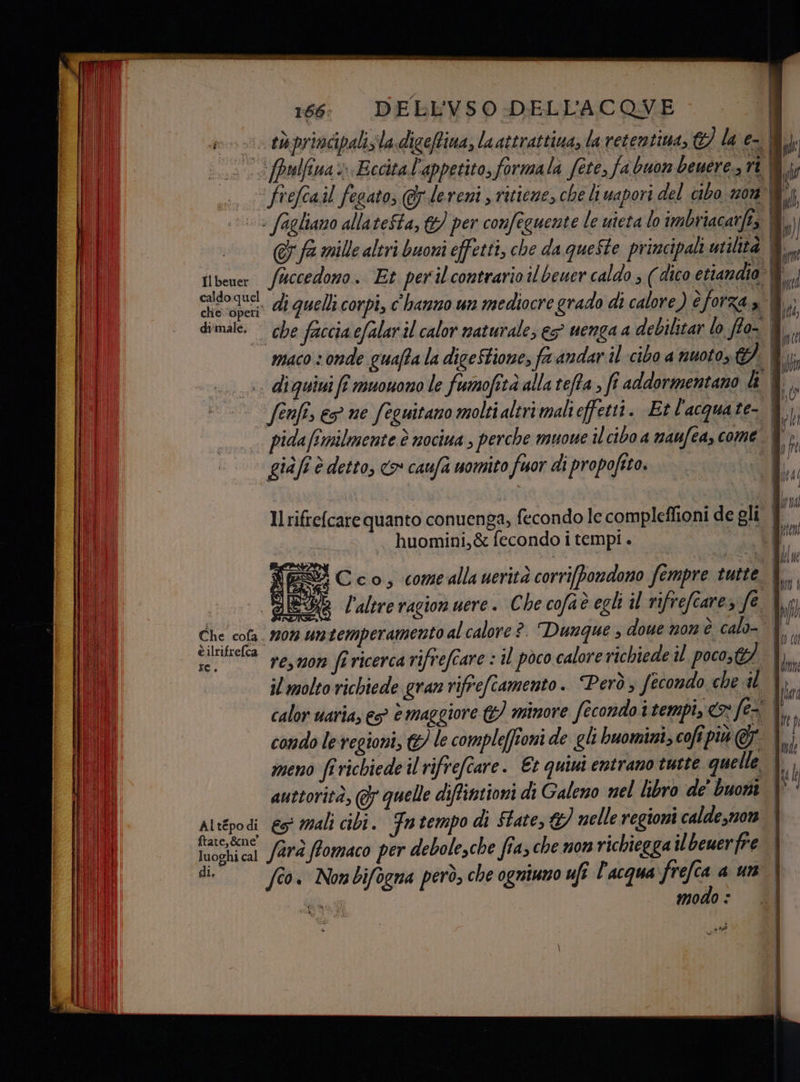 166 DELL'VSO DELL'ACQVE
tù principali, la digeſtiua, la attrattiua, la retentiua, & la e-
ſpulſiua: Eccita l'appetito, forma la ſete, fa buon beuere, ri
freſca il fegato, & le reni, ritiene, che li uapori del cibo non
ſagliano alla teſta, & per conſeguente le uieta lo imbriacarſi,
& fa mille altri buoni effetti, che da queſte principali utilità
Il beuer
caldo quel
che operi
di male.
ſuccedono. Et per il contrario il beuer caldo, (dico etiandio
di quelli corpi, c'hanno un mediocre grado di calore) è forza,
che faccia eſalar il calor naturale, & uenga a debilitar lo ſto-
maco: onde guaſta la digeſtione, fa andar il cibo a nuoto, &
di quiui ſi muouono le fumoſità alla teſta, ſi addormentano li
ſenſi, & ne ſeguitano molti altri mali effetti. Et l'acqua te-
pida ſimilmente è nociua, perche muoue il cibo a nauſea, come
già ſi è detto, & cauſa uomito fuor di propoſito.
Il rifreſcare quanto conuenga, ſecondo le compleſſioni de gli
huomini, & ſecondo i tempi.
Cco, come alla uerità corriſpondono ſempre tutte
l'altre ragion uere. Che coſa è egli il rifreſcare, ſe
Che coſa
è il rifreſca
re.
non un temperamento al calore? Dunque, doue non è calo-
re, non ſi ricerca rifreſcare: il poco calore richiede il poco, &
il molto richiede gran rifreſcamento. Però, ſecondo che il
calor uaria, & è maggiore & minore ſecondo i tempi, & ſe-
condo le regioni, & le compleſſioni de gli huomini, coſi più &
meno ſi richiede il rifreſcare. Et quiui entrano tutte quelle
auttorità, & quelle diſtintioni di Galeno nel libro de' buoni
Al tépo di
ſtate, & ne'
luoghi cal
di.
& mali cibi. In tempo di ſtate, & nelle regioni calde, non
ſarà ſtomaco per debole, che ſia, che non richiegga il beuer fre
ſco. Non biſogna però, che ogniuno uſi l'acqua freſca a un
modo: